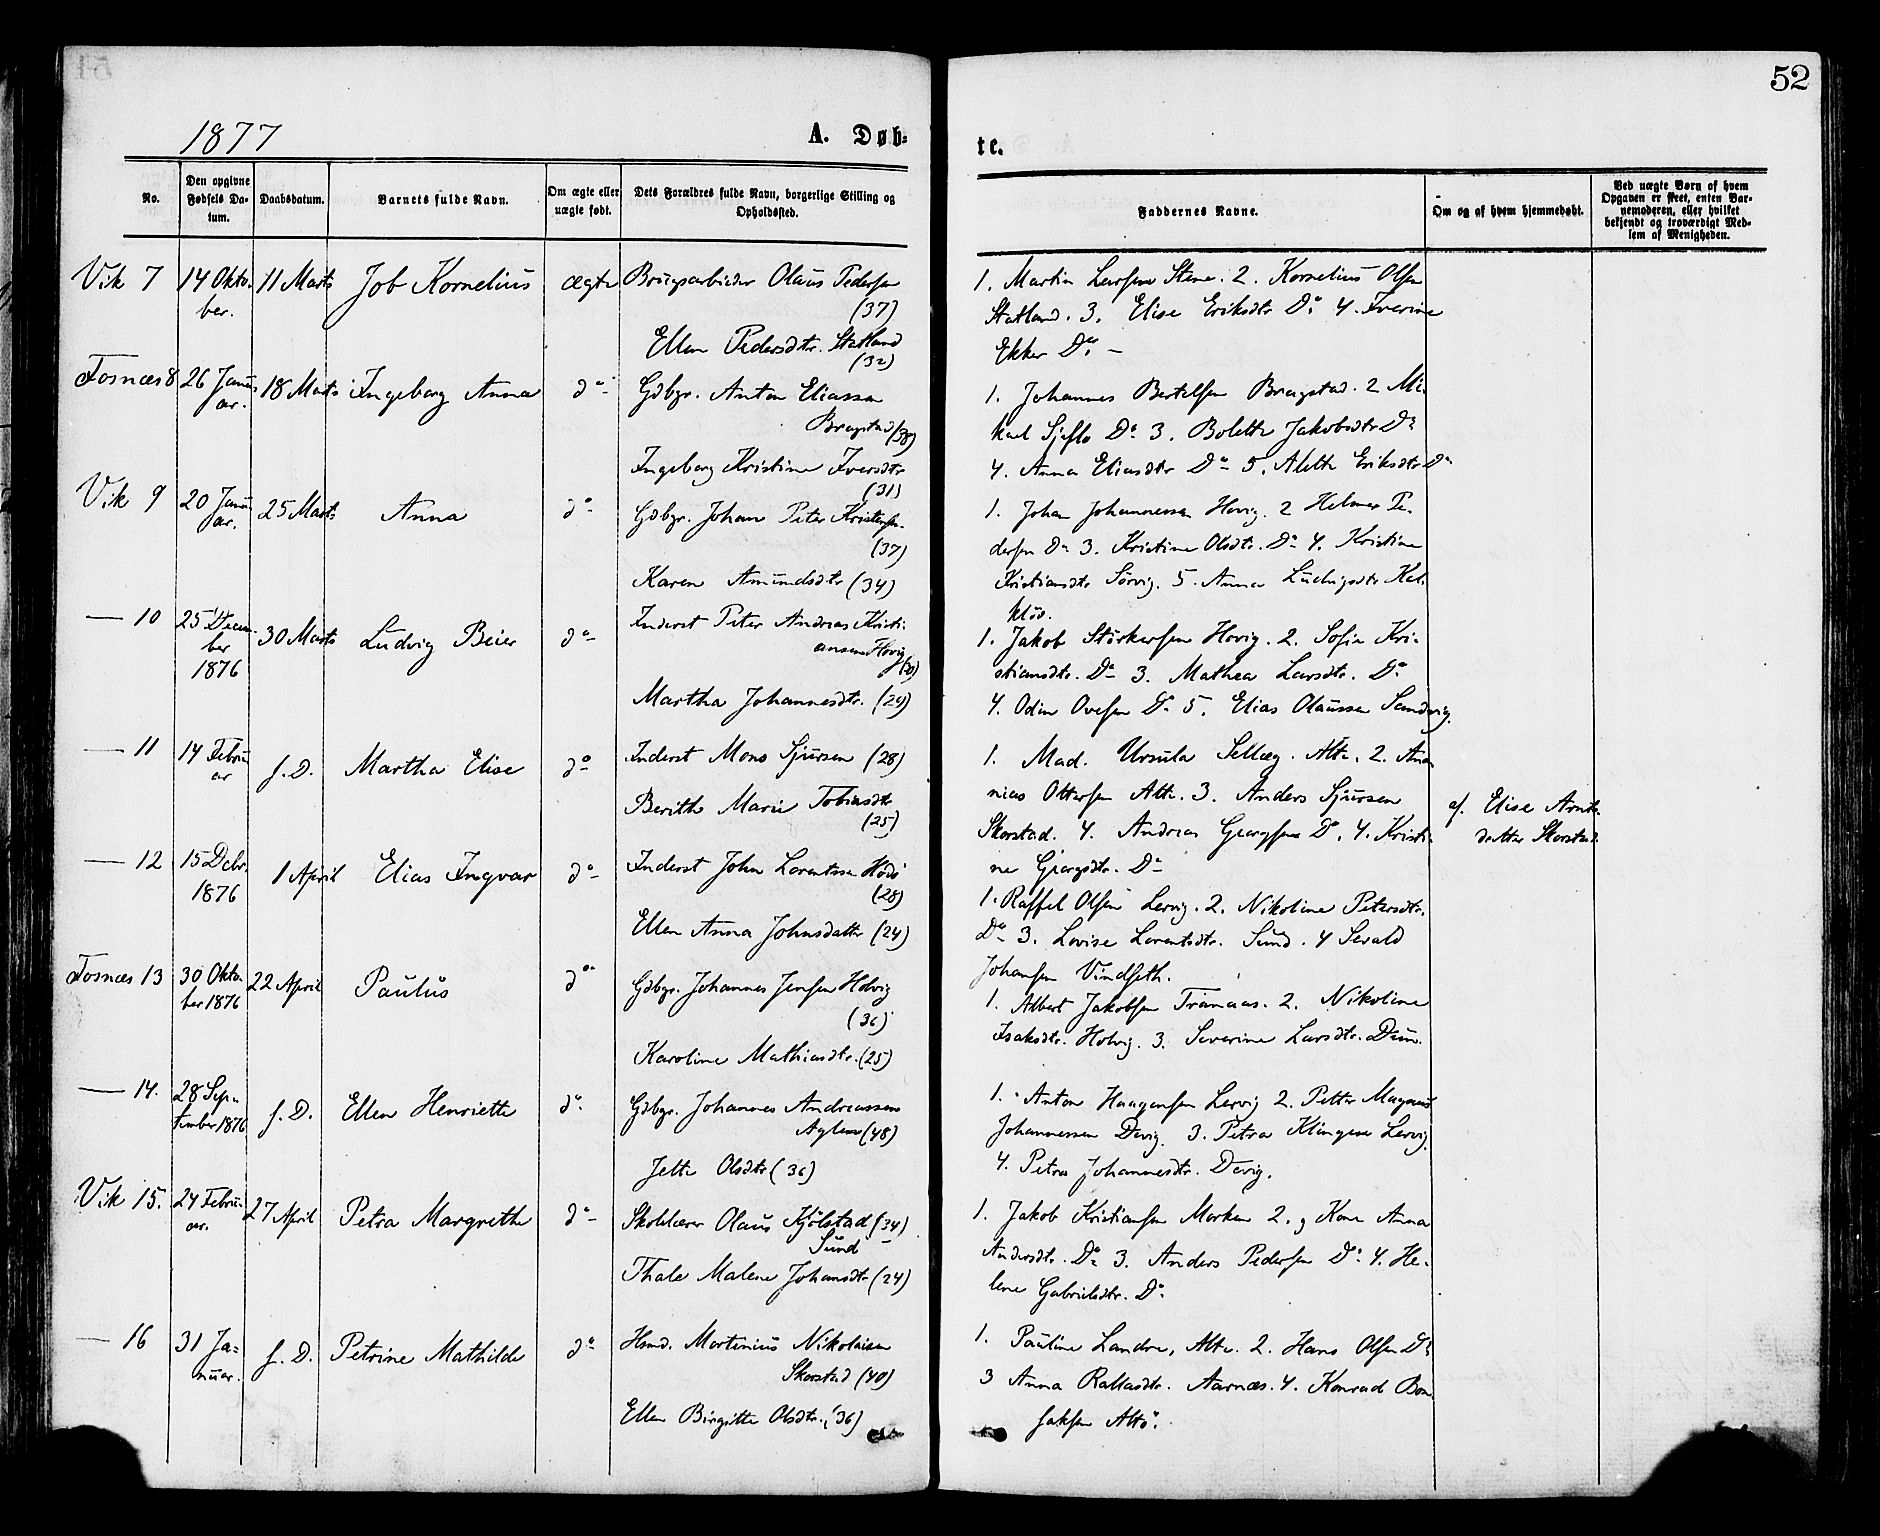 52
1877
A. Døb=
te.
No.
Den opgivne Fødsels Datum.
Daabsdatum.
Barnets fulde Navn.
Om ægte eller uægte født.
Dets Forældres fulde Navn, borgerlige Stilling og Opholdssted.
Faddernes Navne.
Om og af hvem hjemmedøbt.
Ved uægte Børn af hvem Opgaven er skeet, enten Barnemoderen, eller hvilket bekjendt og troværdigt Medlem af Menigheden.
Vik 7 14 Oktober. 11 Marts Job Kornelius ægte Brugsarbeider Olaus Pedersen
(37)
Ellen Pedersdtr. Statland
(32)
1. Martin Larsen Stene. 2. Kornelius Olsen
Statland. 3. Elise Eriksdtr Do 4. Iverine
Ekker Do. –
Fosnæs 8 26 Januar. 18 Marts Ingeborg Anna do Gdbgr. Anton Eliassen
Bragstad (38)
Ingeborg Kristine Iversdtr
(31)
1. Johannes Bertelsen Bragstad. 2 Mi-
kael Do 3. Bolette Jakobsdtr Do
4. Anna Eliasdtr Do 5. Aleth Eriksdtr Do
Vik 9 20 Januar. 25 Marts Anna do Gdbgr. Johan Peter Kristensen.
(37)
Karen Amundsdtr (34)
1. Johan Johannessen Hovig. 2 Helmer Pe-
dersen Do 3. Kristine Olsdtr. Do 4. Kristine
Kristiansdtr Sørvig. 5. Anna Ludvigsdtr Kal-
kløv.
— 10 25 December 1876 30 Marts Ludvig Beier do Inderst Peter Andreas Kristi-
ansen Hovig
Martha Johannesdtr. (29)
1. Jakob Størkersen Hovig. 2. Sofie Kri-
stiansdtr. Do 3. Mathea Larsdtr. Do
4. Odin Ovesen Do 5. Elias Olaussen Sandvig.
— 11 14 Februar f. D. Martha Elise do Inderst Mons Sjursen (28)
Berith Marie Tobiasdtr
(25)
1. Mad. Ursula Sellæg. Altø. 2. Ana-
nias Ottersen Altø. 3. Anders Sjursen
Skorstad. 4. Andreas Georgsen Do. 4. Kristi-
ne Georgsdtr. Do
af Elise Arnts-
datter Skorstad.
— 12 15 Debr. 1876 1 April Elias Ingvar do Inderst John Lorentsen Hødø
(28)
Ellen Anna Johnsdatter (24)
1. Raffel Olsen Lervig. 2. Nikoline Petersdtr.
Do 3. Lovise Lorentsdtr. Sund. 4 Sevald
Johansen Vindseth.
Fosnæs 13 30 Oktober 1876 22 April Paulus do Gdbgr. Johannes Jensen Holvig
(36)
Karoline Mathiasdtr. (25)
1. Albert Jakobsen Tranaas. 2. Nikoline
Isaksdtr. Holvig. 3. Severine Larsdtr. Dun.
— 14. 28 September 1876 f. D. Ellen Henriette do. Gdbgr. Johannes Andreassen
Aglen (48)
Jette Olsdtr (36)
1. Anton Haagensen Lervig 2. Petter Magnus
Johannessen Devig. 3. Petra Klingen Lervig.
4. Petra Johannesdtr. Devig.
Vik 15. 24 Februar. 27 April Petra Margrethe do Skolelærer Olaus Kjølstad (34)
Sund
Thale Malene Johansdtr (24)
1. Jakob Kristiansen Marken 2. og Kone Anna
Andersdtr. Do 3. Anders Pedersen Do 4. He-
lene Gabrielsdtr. Do
— 16 31 Januar. f. D. Petrine Mathilde do Hmd. Martinius Nikolaisen
Skorstad (40)
Ellen Birgitte Olsdtr. (36)
1. Pauline Landre, Altø. 2. Hans Olsen Do
3 Anna Rallasdtr. Aarnæs. 4. Konrad Bon-
saksen Altø.